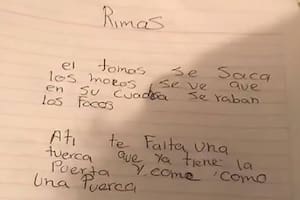 Rimas
el tomas se saca
los mocos se ve que
en su cuadra se raban
los focos
A ti te Falta una
tuerca que ya tiene la
Puerta y come como
una Puerca